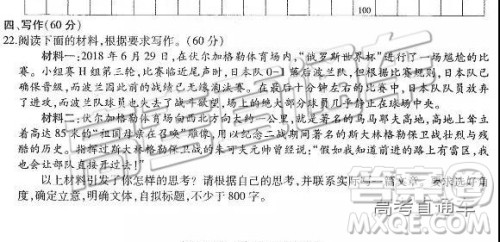 100
四、写作(60 分)
22.阅读下面的材料,根据要求写作。(60 分)
材料一:2018 年 6 月 29 日,在伏尔加格勒体育场内,“俄罗斯世界杯”进行了一场尴尬的比
赛。小组赛 H 组第三轮,比赛临近尾声时,日本队 0-1 落后波兰队,但根据比赛规则,日本队已
确保晋级,而波兰因此前的战绩已无缘淘汰赛。“在最后十分钟左右的比赛中,日本队队员放弃
了进攻,而波兰队球员也失去了战斗欲望,场上的绝大部分球员几乎静止在球场中央。
材料二:在伏尔加格勒体育场向西北方向大约一公里,就是著名的马马耶夫高地,高地上耸立
着高达 85 米的“祖国母亲在召唤”雕像,用以纪念二战期间著名的斯大林格勒保卫战壮烈与残
酷的历史。指挥过斯大林格勒保卫战的朱可夫元帅曾经说:“假如我知道前进的路上有雷区,我
也会让部队直接开过去!”
以上材料引发了你怎样的思考?请根据自己的思考,并联系实际写一篇文章。要求选好角
度,确定立意,明确文体,自拟标题,不少于 800 字。
高考直通车